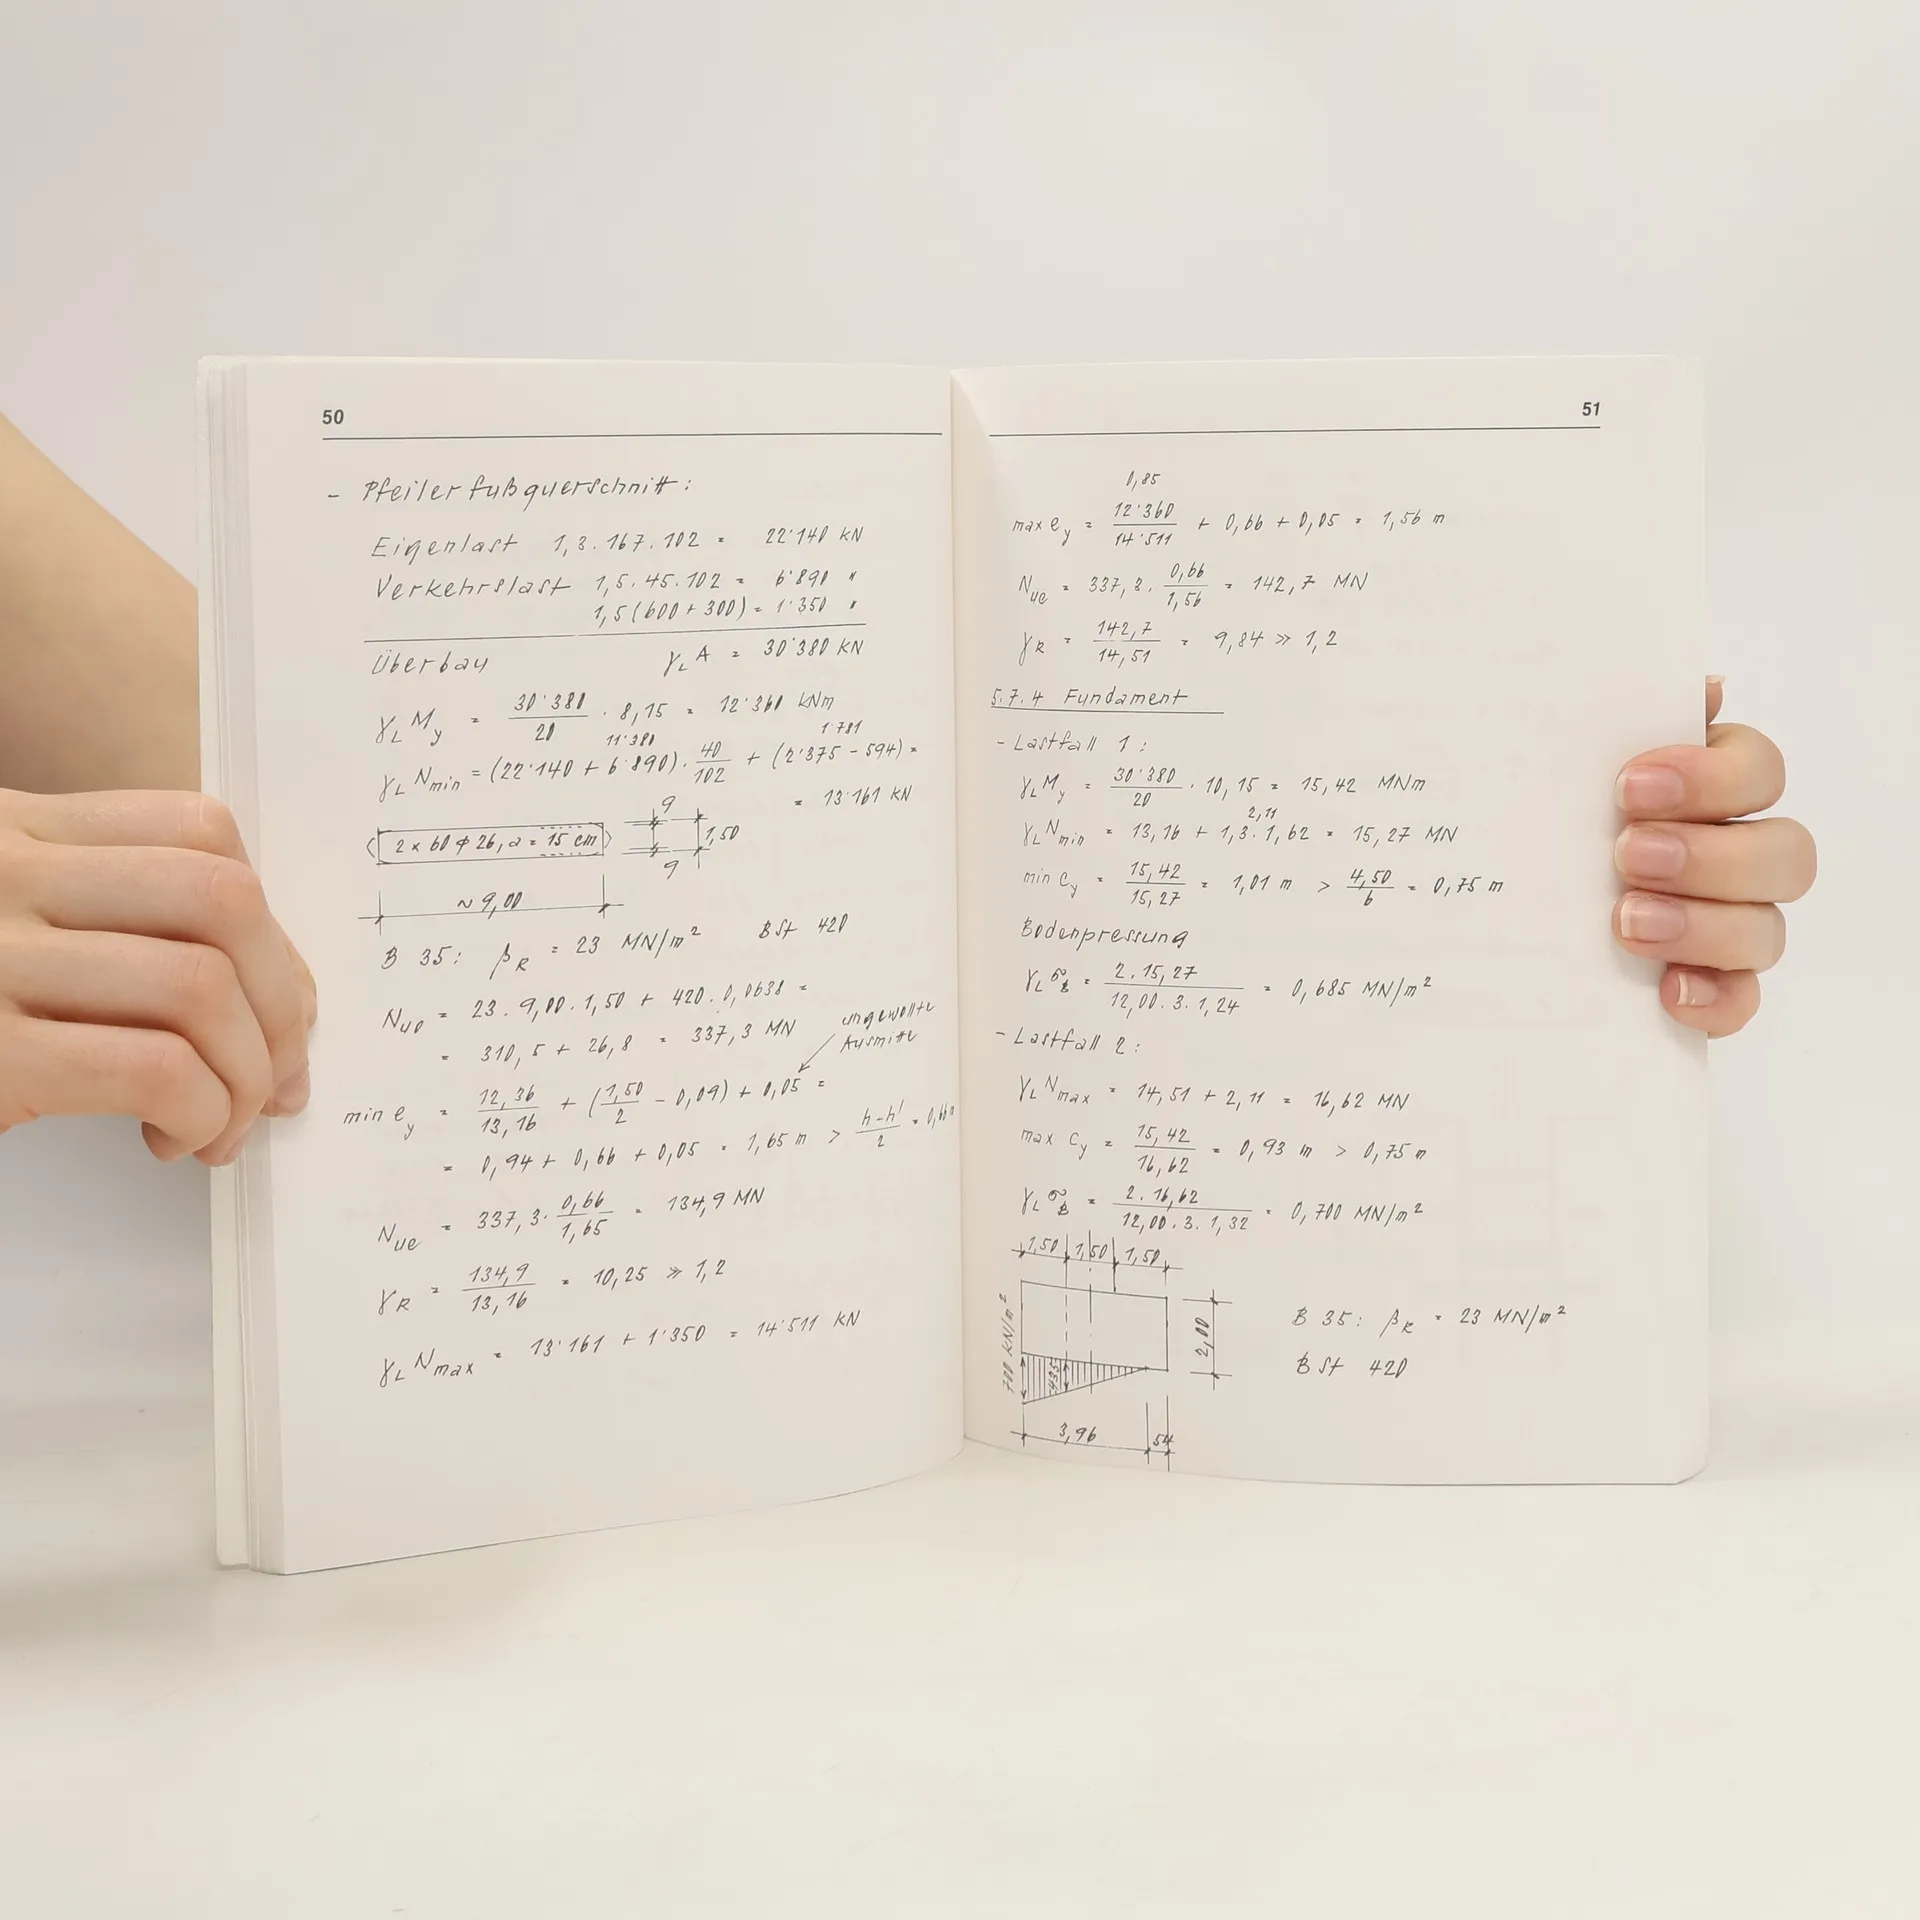 50
- Pfeilerfußquerschnitt:
Eigenlast 1,3.167.102 = 22'140 kN
Verkehrslast 1,5.45.102 = 6'890 "
1,5(600+300) = 1'350 "
Überbau γL A = 30'380 kN
γL My = 30'380/20 · 8,15 = 12'360 kNm
11'380 1'781
γL Nmin = (22'140 + 6'890) · 40/102 + (2'375 - 594) =
= 13'161 kN
9
2 x 60 ϕ 26, a = 15 cm 1,50
9
~ 9,00
B 35: βR = 23 MN/m² BSt 420
Nuo = 23 . 9,00 . 1,50 + 420 . 0,0638 =
= 310,5 + 26,8 = 337,3 MN
ungewollte
Ausmitte
min ey = 12,36/13,16 + (1,50/2 - 0,09) + 0,05 =
= 0,94 + 0,66 + 0,05 = 1,65 m > h-h'/2 = 0,66m
Nue = 337,3 · 0,66/1,65 = 134,9 MN
γR = 134,9/13,16 = 10,25 ≫ 1,2
γL Nmax = 13'161 + 1'350 = 14'511 kN
51
0,85
max ey = 12'360/14'511 + 0,66 + 0,05 = 1,56 m
Nue = 337,3 · 0,66/1,56 = 142,7 MN
γR = 142,7/14,51 = 9,84 ≫ 1,2
5.7.4 Fundament
- Lastfall 1:
γL My = 30'380/20 · 10,15 = 15,42 MNm
2,11
γL Nmin = 13,16 + 1,3 · 1,62 = 15,27 MN
min cy = 15,42/15,27 = 1,01 m > 4,50/6 = 0,75 m
Bodenpressung
γL σB = 2.15,27/12,00.3.1,24 = 0,685 MN/m²
- Lastfall 2:
γL Nmax = 14,51 + 2,11 = 16,62 MN
max cy = 15,42/16,62 = 0,93 m > 0,75 m
γL σB = 2.16,62/12,00.3.1,32 = 0,700 MN/m²
1,50 1,50 1,50
700 kN/m² 435 2,00
B 35: βR = 23 MN/m²
BSt 420
3,96 54